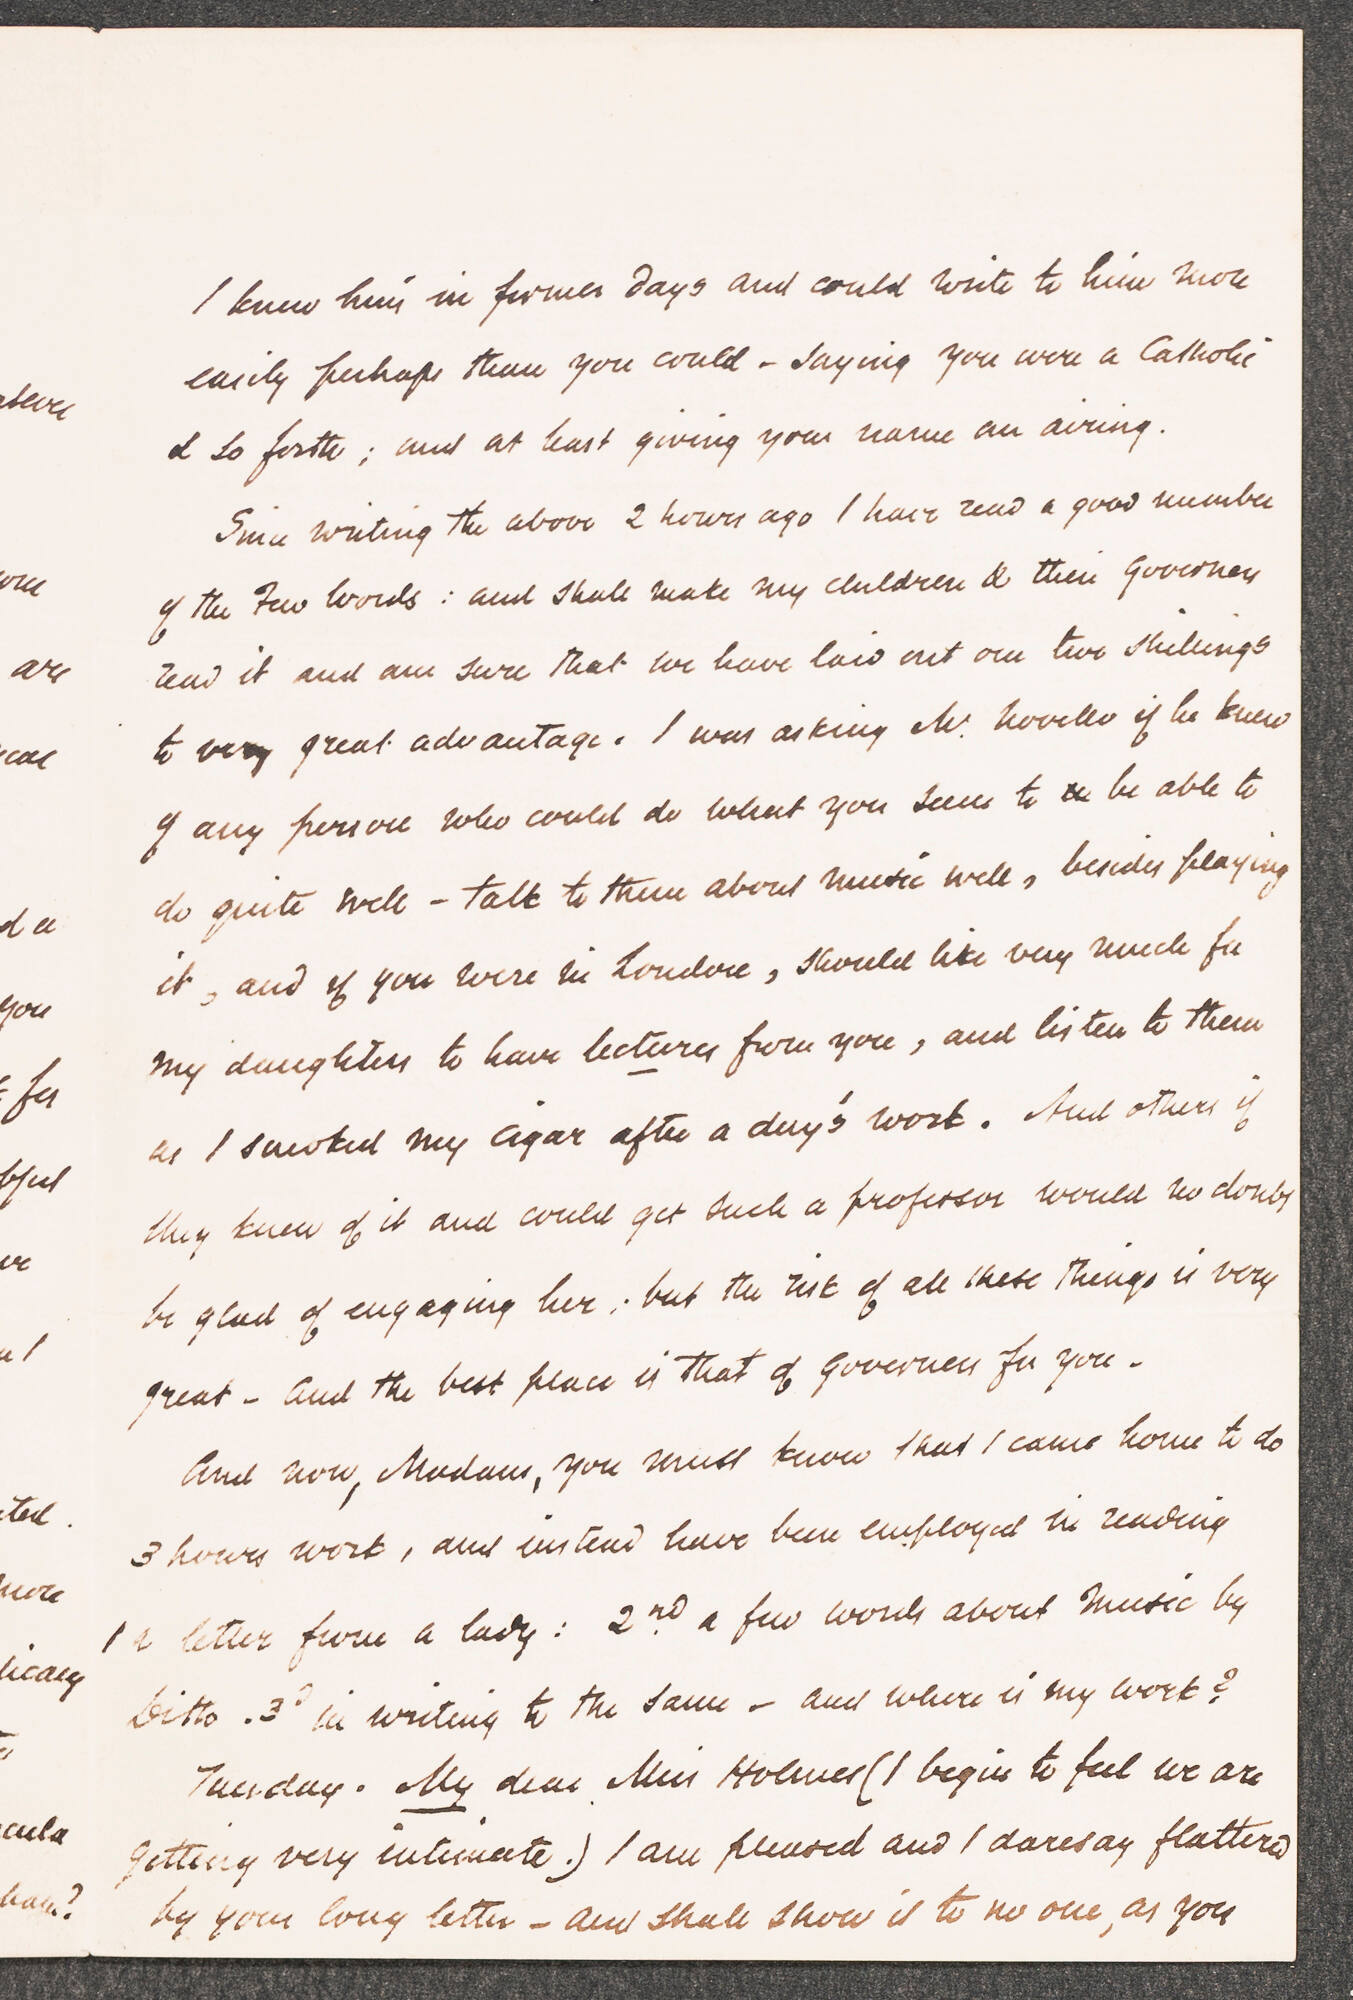 I knew him in former days and could write to him more
easily perhaps than you could - saying you were a Catholic
& so forth; and at least giving your name an airing.
Since writing the above 2 hours ago I have read a good number
of the Few Words: and shall make my children & their Governess
read it and am sure that we have laid out our two shillings
to very great advantage. I was asking Mr. Novello if he knew
of any person who could do what you seem to be able to
do quite well - talk to them about music well, besides playing
it, and if you were in London, should like very much for
my daughters to have lectures from you, and listen to them
as I smoked my cigar after a day's work. And others if
they knew of it and could get such a professor would no doubt
be glad of engaging her; but the risk of all these things is very
great - and the best place is that of Governess for you -
And now, Madam, you must know that I came home to do
3 hours work, and instead have been employed in reading
1 a letter from a lady: 2nd a few words about Music by
Ditto. 3d in writing to the same - and where is my work?
Tuesday. My dear Miss Holmes (I begin to feel we are
getting very intimate.) I am pleased and I daresay flattered
by your long letter - and shall show it to no one, as you
above
are
d a
you
for
ted.
more
cula